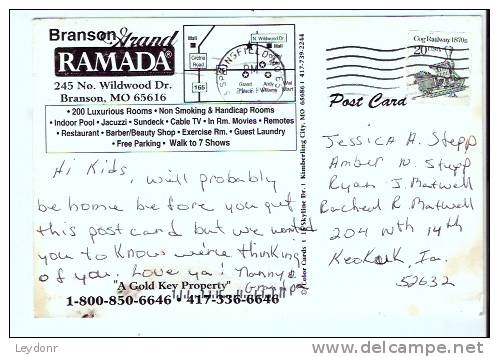 Branson Grand
RAMADA®
245 No. Wildwood Dr.
Branson, MO 65616
N. Wildwood Dr.
Mall
Mall
Road
165
Grand
Andy
Williams
SPRINGFIELD MO
PM
• 200 Luxurious Rooms • Non Smoking & Handicap Rooms
• Indoor Pool • Jacuzzi • Sundeck • Cable TV • In Rm. Movies • Remotes
• Restaurant • Barber/Beauty Shop • Exercise Rm. • Guest Laundry
• Free Parking • Walk to 7 Shows
Hi Kids, we'll probably
be home before you get
this post card but we wanted
you to know we're thinking
of you. Love ya! Nanny &
Grampa
"A Gold Key Property"
1-800-850-6646 • 417-336-6646
Color Cards • Skyline Dr. • Kimberling City, MO 65686 • 417-739-2244
Cog Railway 1870s
20 USA
Post Card
Jessica A. Stepp
Amber N. Stepp
Ryan J. Matwell
Racheal R Matwell
204 Nth 14th
Keokuk, Ia.
52632
Leydonr
delcampe.net